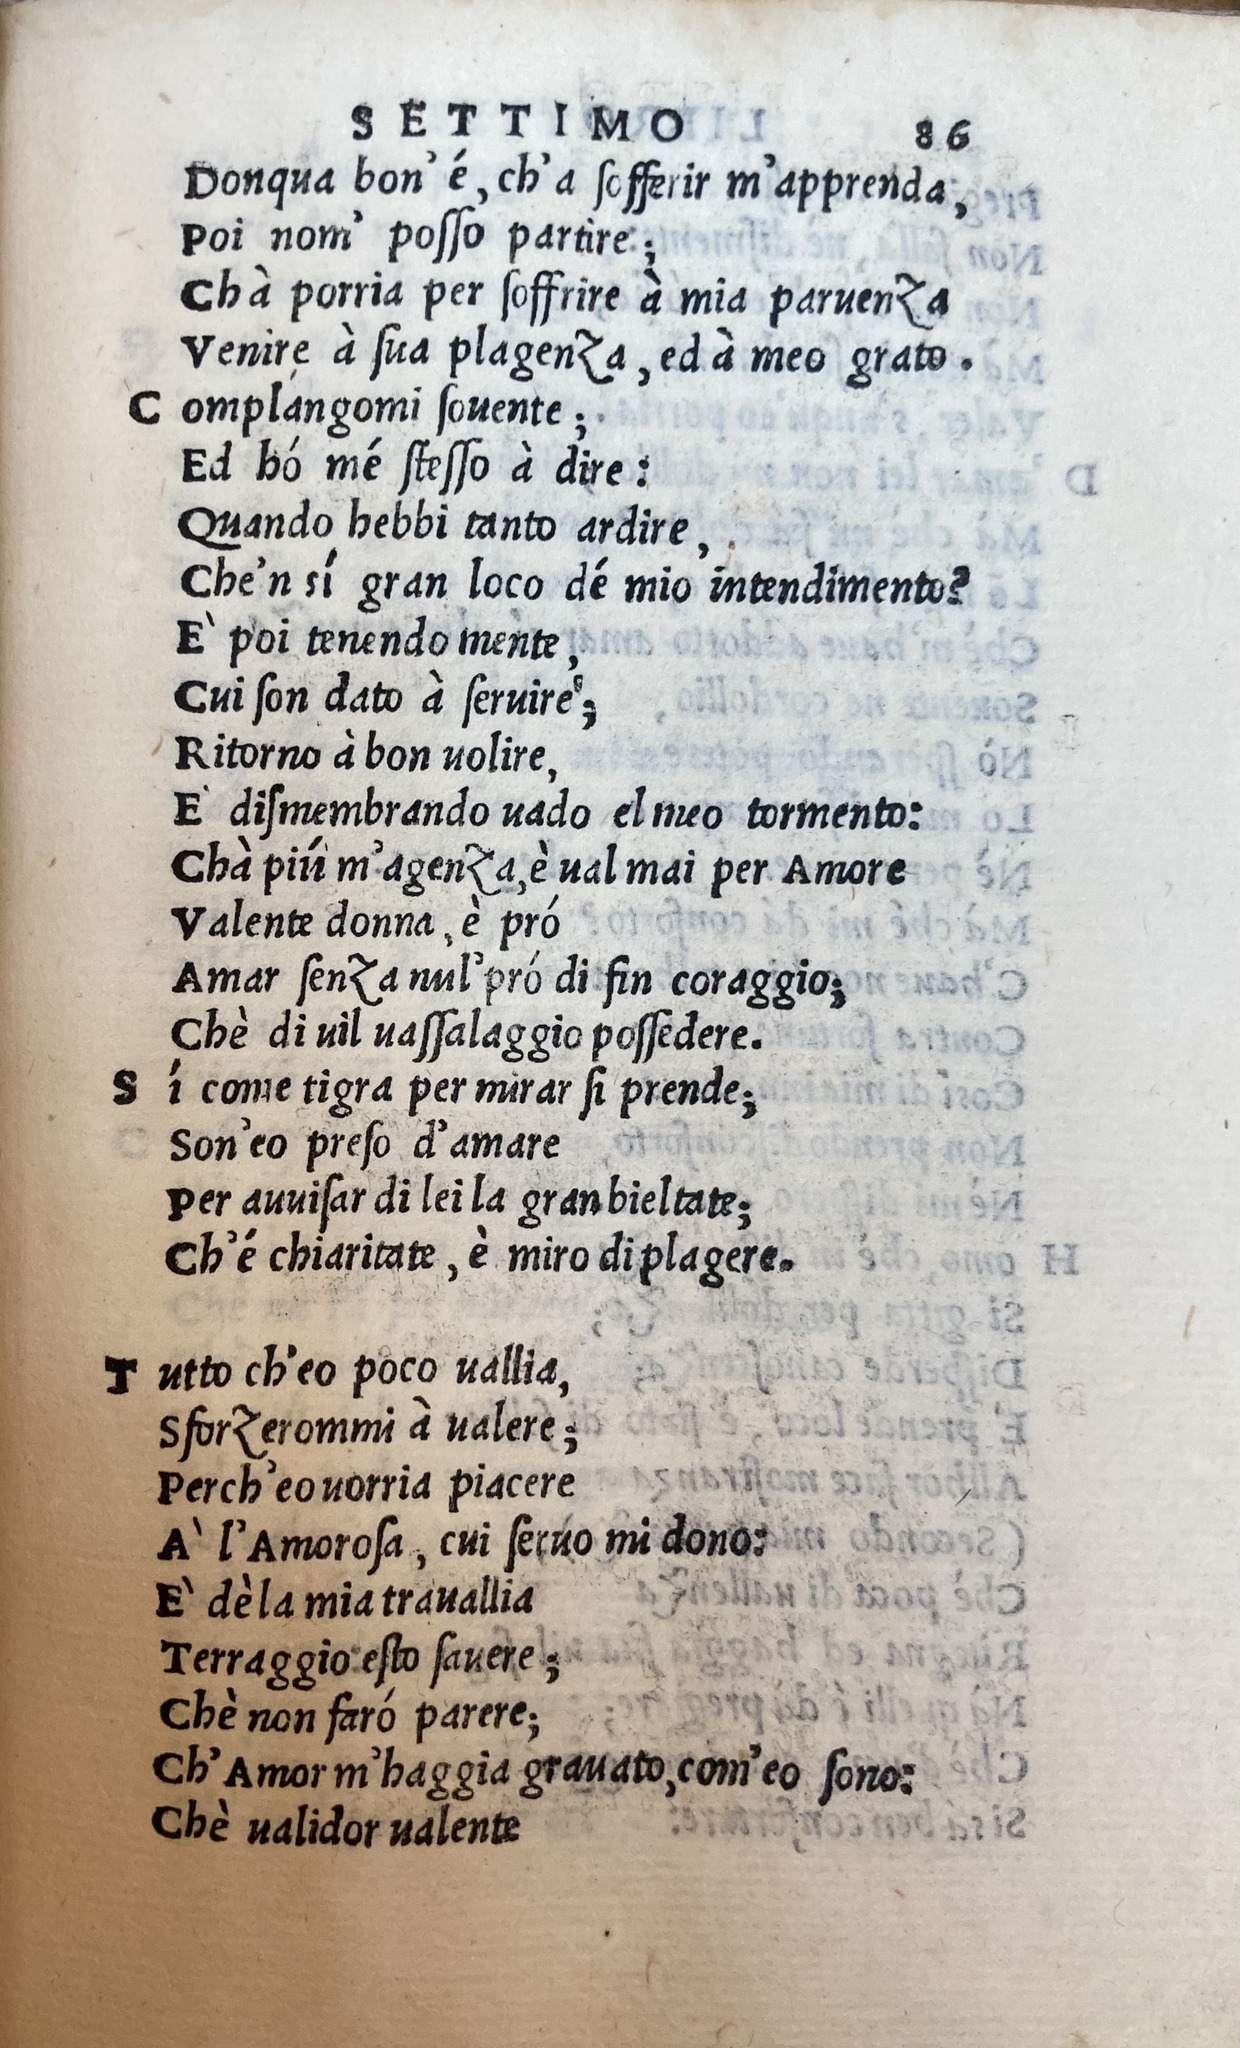 SETTIMO 86
Donqua bon' é, ch'a ſofferir m'apprenda,
Poi nom' poſſo partire;
Chà porria per ſoffrire à mia paruenza
Venire à ſua plagenza, ed à meo grato.
Complangomi ſouente;
Ed hó mé ſteſſo à dire:
Quando hebbi tanto ardire,
Che'n sí gran loco dé mio intendimento?
E' poi tenendo mente,
Cui ſon dato à ſeruire;
Ritorno à bon uolire,
E' diſmembrando uado el meo tormento:
Chà piú m'agenza, è ual mai per Amore
Valente donna, è pró
Amar ſenza nul' pró di fin coraggio;
Chè di uil uaſſalaggio poſſedere.
Sí come tigra per mirar ſi prende;
Son'eo preſo d'amare
Per auuiſar di lei la gran bieltate;
Ch'é chiaritate, è miro di plagere.
Tutto ch'eo poco uallia,
Sforzerommi à ualere;
Perch'eo uorria piacere
A' l'Amoroſa, cui ſeruo mi dono:
E' dè la mia trauallia
Terraggio eſto ſauere;
Chè non faró parere;
Ch'Amor m'haggia grauato, com'eo ſono:
Chè ualidor ualente